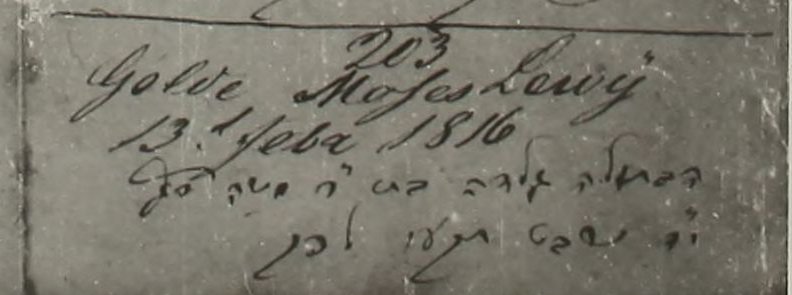 203
Golde Moses Lewÿ
13.t feba 1816
הבתולה גולדה בת כ״ר משה סג״ל
י״ד שבט תקעו לפק